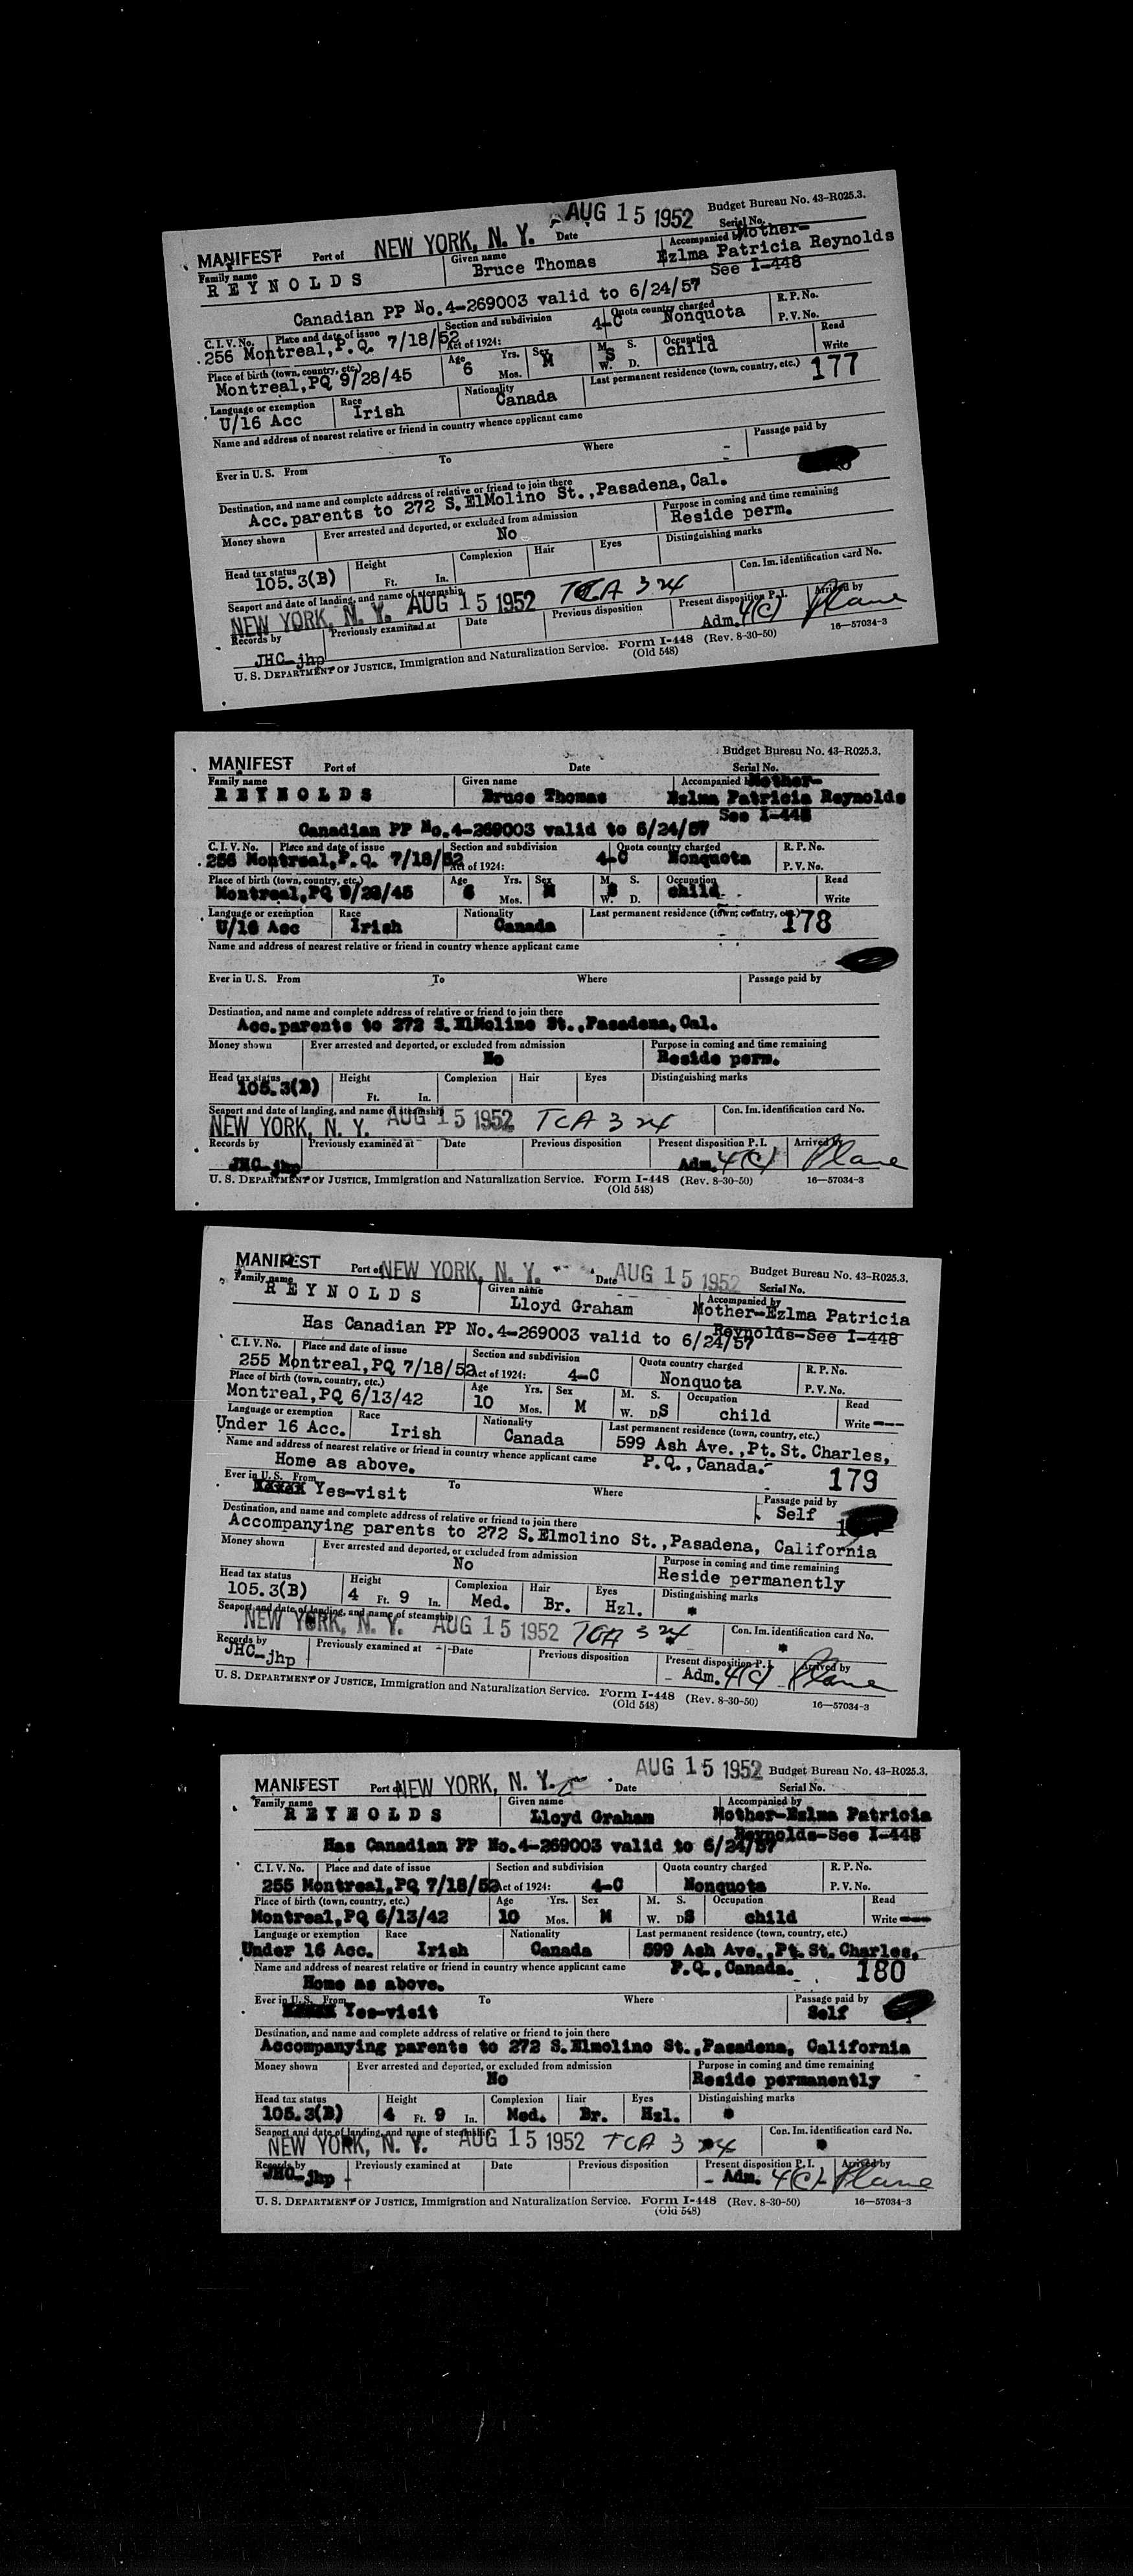 AUG 15 1952 Budget Bureau No. 43-R025.3.
MANIFEST Port of NEW YORK, N. Y. Date Serial No.
Family name Given name Accompanied by Mother-
REYNOLDS Bruce Thomas Ezlma Patricia Reynolds
See I-448
Canadian PP No.4-269003 valid to 6/24/57
C. I. V. No. Place and date of issue Section and subdivision Quota country charged R. P. No.
256 Montreal, P.Q. 7/18/52 Act of 1924: 4-C Nonquota P. V. No.
Place of birth (town, country, etc.) Age Yrs. Sex M. S. Occupation Read
Montreal,PQ 9/28/45 6 Mos. M S W. D. child Write
Language or exemption Race Nationality Last permanent residence (town, country, etc.) 177
U/16 Acc Irish Canada
Name and address of nearest relative or friend in country whence applicant came
Ever in U. S. From To Where Passage paid by
Destination, and name and complete address of relative or friend to join there
Acc.parents to 272 S.ElMolino St.,Pasadena,Cal.
Money shown Ever arrested and deported, or excluded from admission Purpose in coming and time remaining
No Reside perm.
Head tax status Height Complexion Hair Eyes Distinguishing marks
105.3(B) Ft. In.
Seaport and date of landing, and name of steamship Con. Im. identification card No.
NEW YORK, N. Y. AUG 15 1952 TCA 324
Records by Previously examined at Date Previous disposition Present disposition P. I. Arrived by
JHC-jhp Adm. 4(C) Plane
U. S. DEPARTMENT OF JUSTICE, Immigration and Naturalization Service. Form I-448 (Rev. 8-30-50) 16—57034-3
(Old 548)
Budget Bureau No. 43-R025.3.
MANIFEST Port of Date Serial No.
Family name Given name Accompanied by Mother-
REYNOLDS Bruce Thomas Ezlma Patricia Reynolds
See I-448
Canadian PP No.4-269003 valid to 6/24/57
C. I. V. No. Place and date of issue Section and subdivision Quota country charged R. P. No.
256 Montreal, P.Q. 7/18/52 Act of 1924: 4-C Nonquota P. V. No.
Place of birth (town, country, etc.) Age Yrs. Sex M. S. Occupation Read
Montreal,PQ 9/28/45 6 Mos. M S W. D. child Write
Language or exemption Race Nationality Last permanent residence (town, country, etc.) 178
U/16 Acc Irish Canada
Name and address of nearest relative or friend in country whence applicant came
Ever in U. S. From To Where Passage paid by
Destination, and name and complete address of relative or friend to join there
Acc.parents to 272 S.ElMolino St.,Pasadena,Cal.
Money shown Ever arrested and deported, or excluded from admission Purpose in coming and time remaining
No Reside perm.
Head tax status Height Complexion Hair Eyes Distinguishing marks
105.3(B) Ft. In.
Seaport and date of landing, and name of steamship Con. Im. identification card No.
NEW YORK, N. Y. AUG 15 1952 TCA 324
Records by Previously examined at Date Previous disposition Present disposition P. I. Arrived by
JHC-jhp Adm. 4(C) Plane
U. S. DEPARTMENT OF JUSTICE, Immigration and Naturalization Service. Form I-448 (Rev. 8-30-50) 16—57034-3
(Old 548)
MANIFEST Port of NEW YORK, N. Y. Date AUG 15 1952 Budget Bureau No. 43-R025.3.
Serial No.
Family name Given name Accompanied by
REYNOLDS Lloyd Graham Mother-Ezlma Patricia
Reynolds-See I-448
Has Canadian PP No.4-269003 valid to 6/24/57
C. I. V. No. Place and date of issue Section and subdivision Quota country charged R. P. No.
255 Montreal,PQ 7/18/52 Act of 1924: 4-C Nonquota P. V. No.
Place of birth (town, country, etc.) Age Yrs. Sex M. S. Occupation Read
Montreal,PQ 6/13/42 10 Mos. M W. D. S child Write ---
Language or exemption Race Nationality Last permanent residence (town, country, etc.)
Under 16 Acc. Irish Canada 599 Ash Ave.,Pt.St.Charles,
Name and address of nearest relative or friend in country whence applicant came P.Q.,Canada. 179
Home as above.
Ever in U. S. From To Where Passage paid by
Yes-visit Self
Destination, and name and complete address of relative or friend to join there
Accompanying parents to 272 S.Elmolino St.,Pasadena, California
Money shown Ever arrested and deported, or excluded from admission Purpose in coming and time remaining
No Reside permanently
Head tax status Height Complexion Hair Eyes Distinguishing marks
105.3(B) 4 Ft. 9 In. Med. Br. Hzl. *
Seaport and date of landing, and name of steamship Con. Im. identification card No.
NEW YORK, N. Y. AUG 15 1952 TCA 324 *
Records by Previously examined at Date Previous disposition Present disposition P. I. Arrived by
JHC-jhp Adm. 4(C) Plane
U. S. DEPARTMENT OF JUSTICE, Immigration and Naturalization Service. Form I-448 (Rev. 8-30-50) 16—57034-3
(Old 548)
AUG 15 1952 Budget Bureau No. 43-R025.3.
MANIFEST Port of NEW YORK, N. Y. Date Serial No.
Family name Given name Accompanied by
REYNOLDS Lloyd Graham Mother-Ezlma Patricia
Reynolds-See I-448
Has Canadian PP No.4-269003 valid to 6/24/57
C. I. V. No. Place and date of issue Section and subdivision Quota country charged R. P. No.
255 Montreal,PQ 7/18/52 Act of 1924: 4-C Nonquota P. V. No.
Place of birth (town, country, etc.) Age Yrs. Sex M. S. Occupation Read
Montreal,PQ 6/13/42 10 Mos. M W. D. S child Write ---
Language or exemption Race Nationality Last permanent residence (town, country, etc.)
Under 16 Acc. Irish Canada 599 Ash Ave.,Pt.St.Charles,
Name and address of nearest relative or friend in country whence applicant came P.Q.,Canada. 180
Home as above.
Ever in U. S. From To Where Passage paid by
Yes-visit Self
Destination, and name and complete address of relative or friend to join there
Accompanying parents to 272 S.Elmolino St.,Pasadena, California
Money shown Ever arrested and deported, or excluded from admission Purpose in coming and time remaining
No Reside permanently
Head tax status Height Complexion Hair Eyes Distinguishing marks
105.3(B) 4 Ft. 9 In. Med. Br. Hzl. *
Seaport and date of landing, and name of steamship Con. Im. identification card No.
NEW YORK, N. Y. AUG 15 1952 TCA 324 *
Records by Previously examined at Date Previous disposition Present disposition P. I. Arrived by
JHC-jhp Adm. 4(C) Plane
U. S. DEPARTMENT OF JUSTICE, Immigration and Naturalization Service. Form I-448 (Rev. 8-30-50) 16—57034-3
(Old 548)